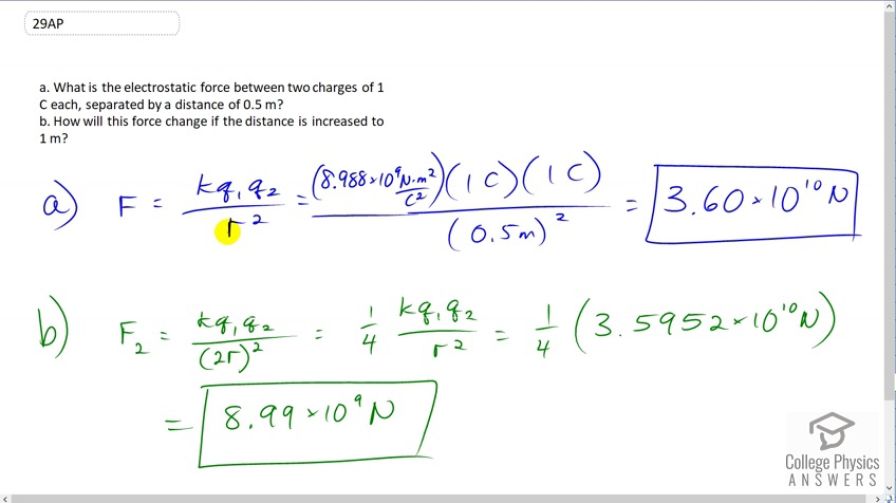 29AP
a. What is the electrostatic force between two charges of 1
C each, separated by a distance of 0.5 m?
b. How will this force change if the distance is increased to
1 m?
a) F = kq₁q₂/r² = (8.988×10⁹ N·m²/C²)(1 C)(1 C)/(0.5m)² = 3.60×10¹⁰ N
b) F₂ = kq₁q₂/(2r)² = 1/4 kq₁q₂/r² = 1/4 (3.5952×10¹⁰ N)
= 8.99×10⁹ N
College Physics
ANSWERS